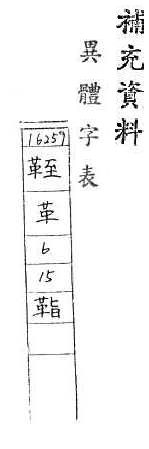 補充資料
異體字表
16257
革
6
15